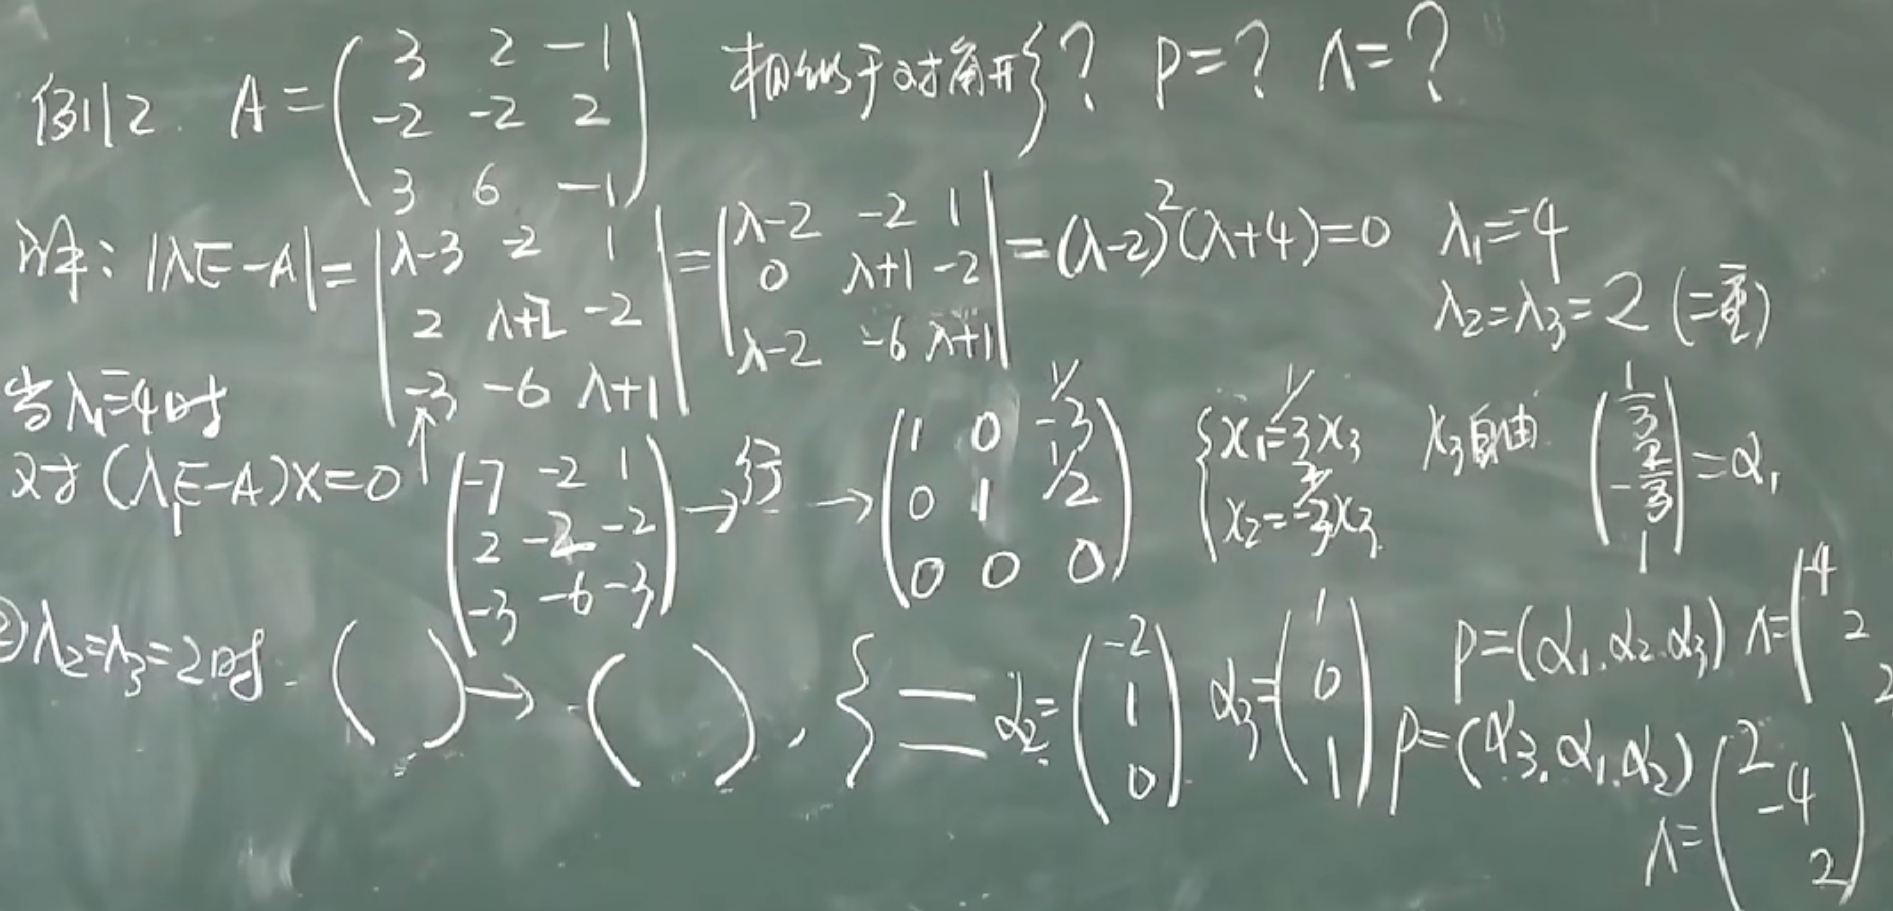 例12. A = (3 2 -1; -2 -2 2; 3 6 -1) 相似于对角形? P=? Λ=?
解: |λE-A| = |λ-3 -2 1; 2 λ+2 -2; -3 -6 λ+1| = |λ-2 -2 1; 0 λ+1 -2; λ-2 -6 λ+1| = (λ-2)²(λ+4)=0 λ₁=-4
λ₂=λ₃=2 (二重)
当λ₁=-4时
对(λ₁E-A)X=0 (-7 -2 1; 2 -2 -2; -3 -6 -3) → 行 → (1 0 -1/3; 0 1 1/2; 0 0 0) { x₁=1/3x₃ x₂=-2/3x₃ x₃自由 (1/3; -2/3; 1) = α₁
② λ₂=λ₃=2时. ( ) → ( ), { = α₂= (-2; 1; 0) α₃= (1; 0; 1) P=(α₁.α₂.α₃) Λ=(-4 2 2
P=(α₃.α₁.α₂)
Λ=(2 -4 2)